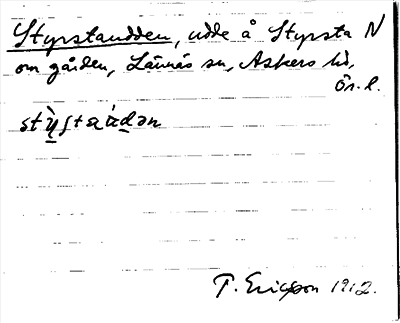 Styrstaudden, udde å Styrsta N
om gården, Lännäs sn, Askers hd,
Ör. l.
T. Ericsson 1912.